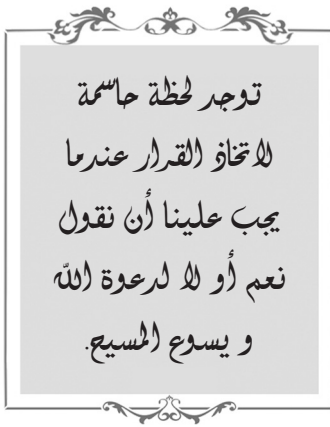 توجد لحظة حاسمة
لاتخاذ القرار عندما
يجب علينا أن نقول
نعم أو لا لدعوة الله
و يسوع المسيح.